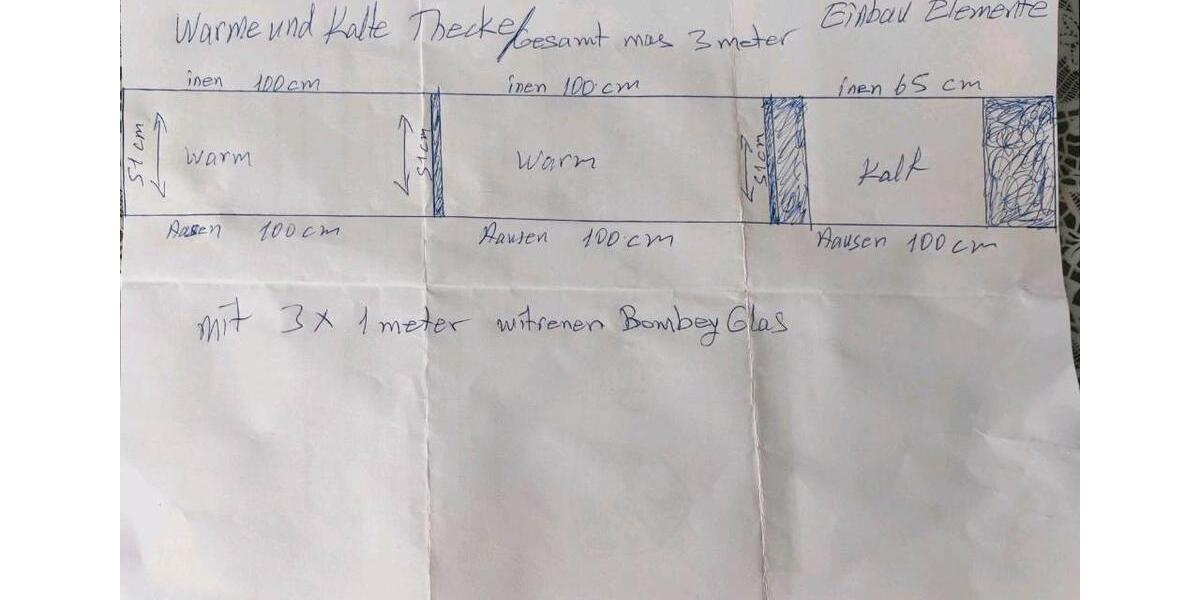 Warme und Kalte Thecke/Gesamt mas 3 meter
Einbau Elemente
inen 100 cm
inen 100 cm
inen 65 cm
51 cm
warm
51 cm
warm
51 cm
Kalt
Aasen 100 cm
Aausen 100 cm
Aausen 100 cm
mit 3 x 1 meter witrenen Bombey Glas